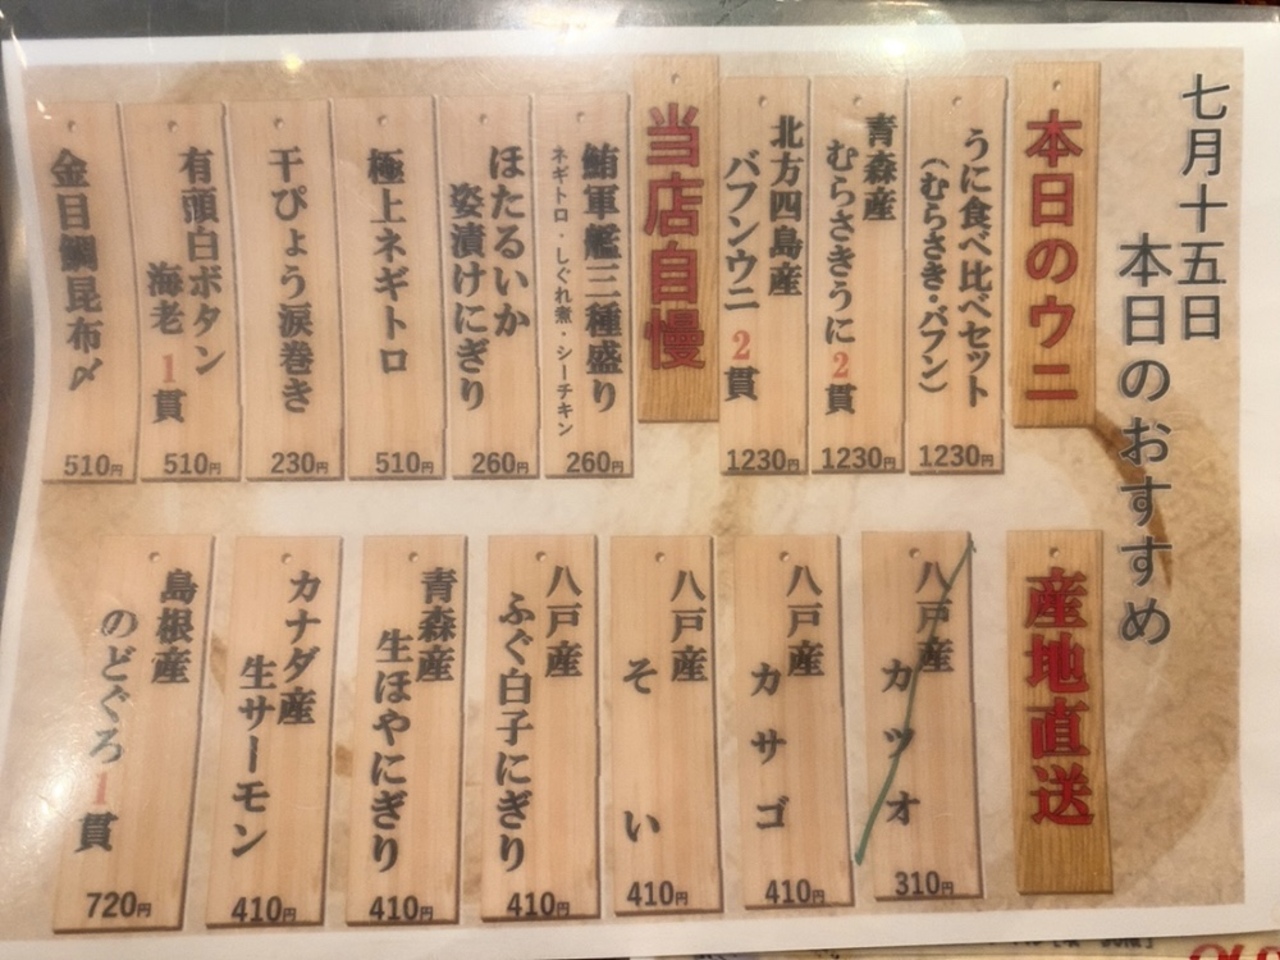 七月十五日
本日のおすすめ
本日のウニ
うに食べ比べセット
（むらさき・バフン）
1230円
青森産
むらさきうに2貫
1230円
北方四島産
バフンウニ2貫
1230円
当店自慢
鮪軍艦三種盛り
ネギトロ・しぐれ煮・シーチキン
260円
ほたるいか
姿漬けにぎり
260円
極上ネギトロ
510円
干ぴょう涙巻き
230円
有頭白ボタン
海老1貫
510円
金目鯛昆布〆
510円
産地直送
八戸産
カツオ
310円
八戸産
カサゴ
410円
八戸産
そい
410円
八戸産
ふぐ白子にぎり
410円
青森産
生ほやにぎり
410円
カナダ産
生サーモン
410円
島根産
のどぐろ1貫
720円